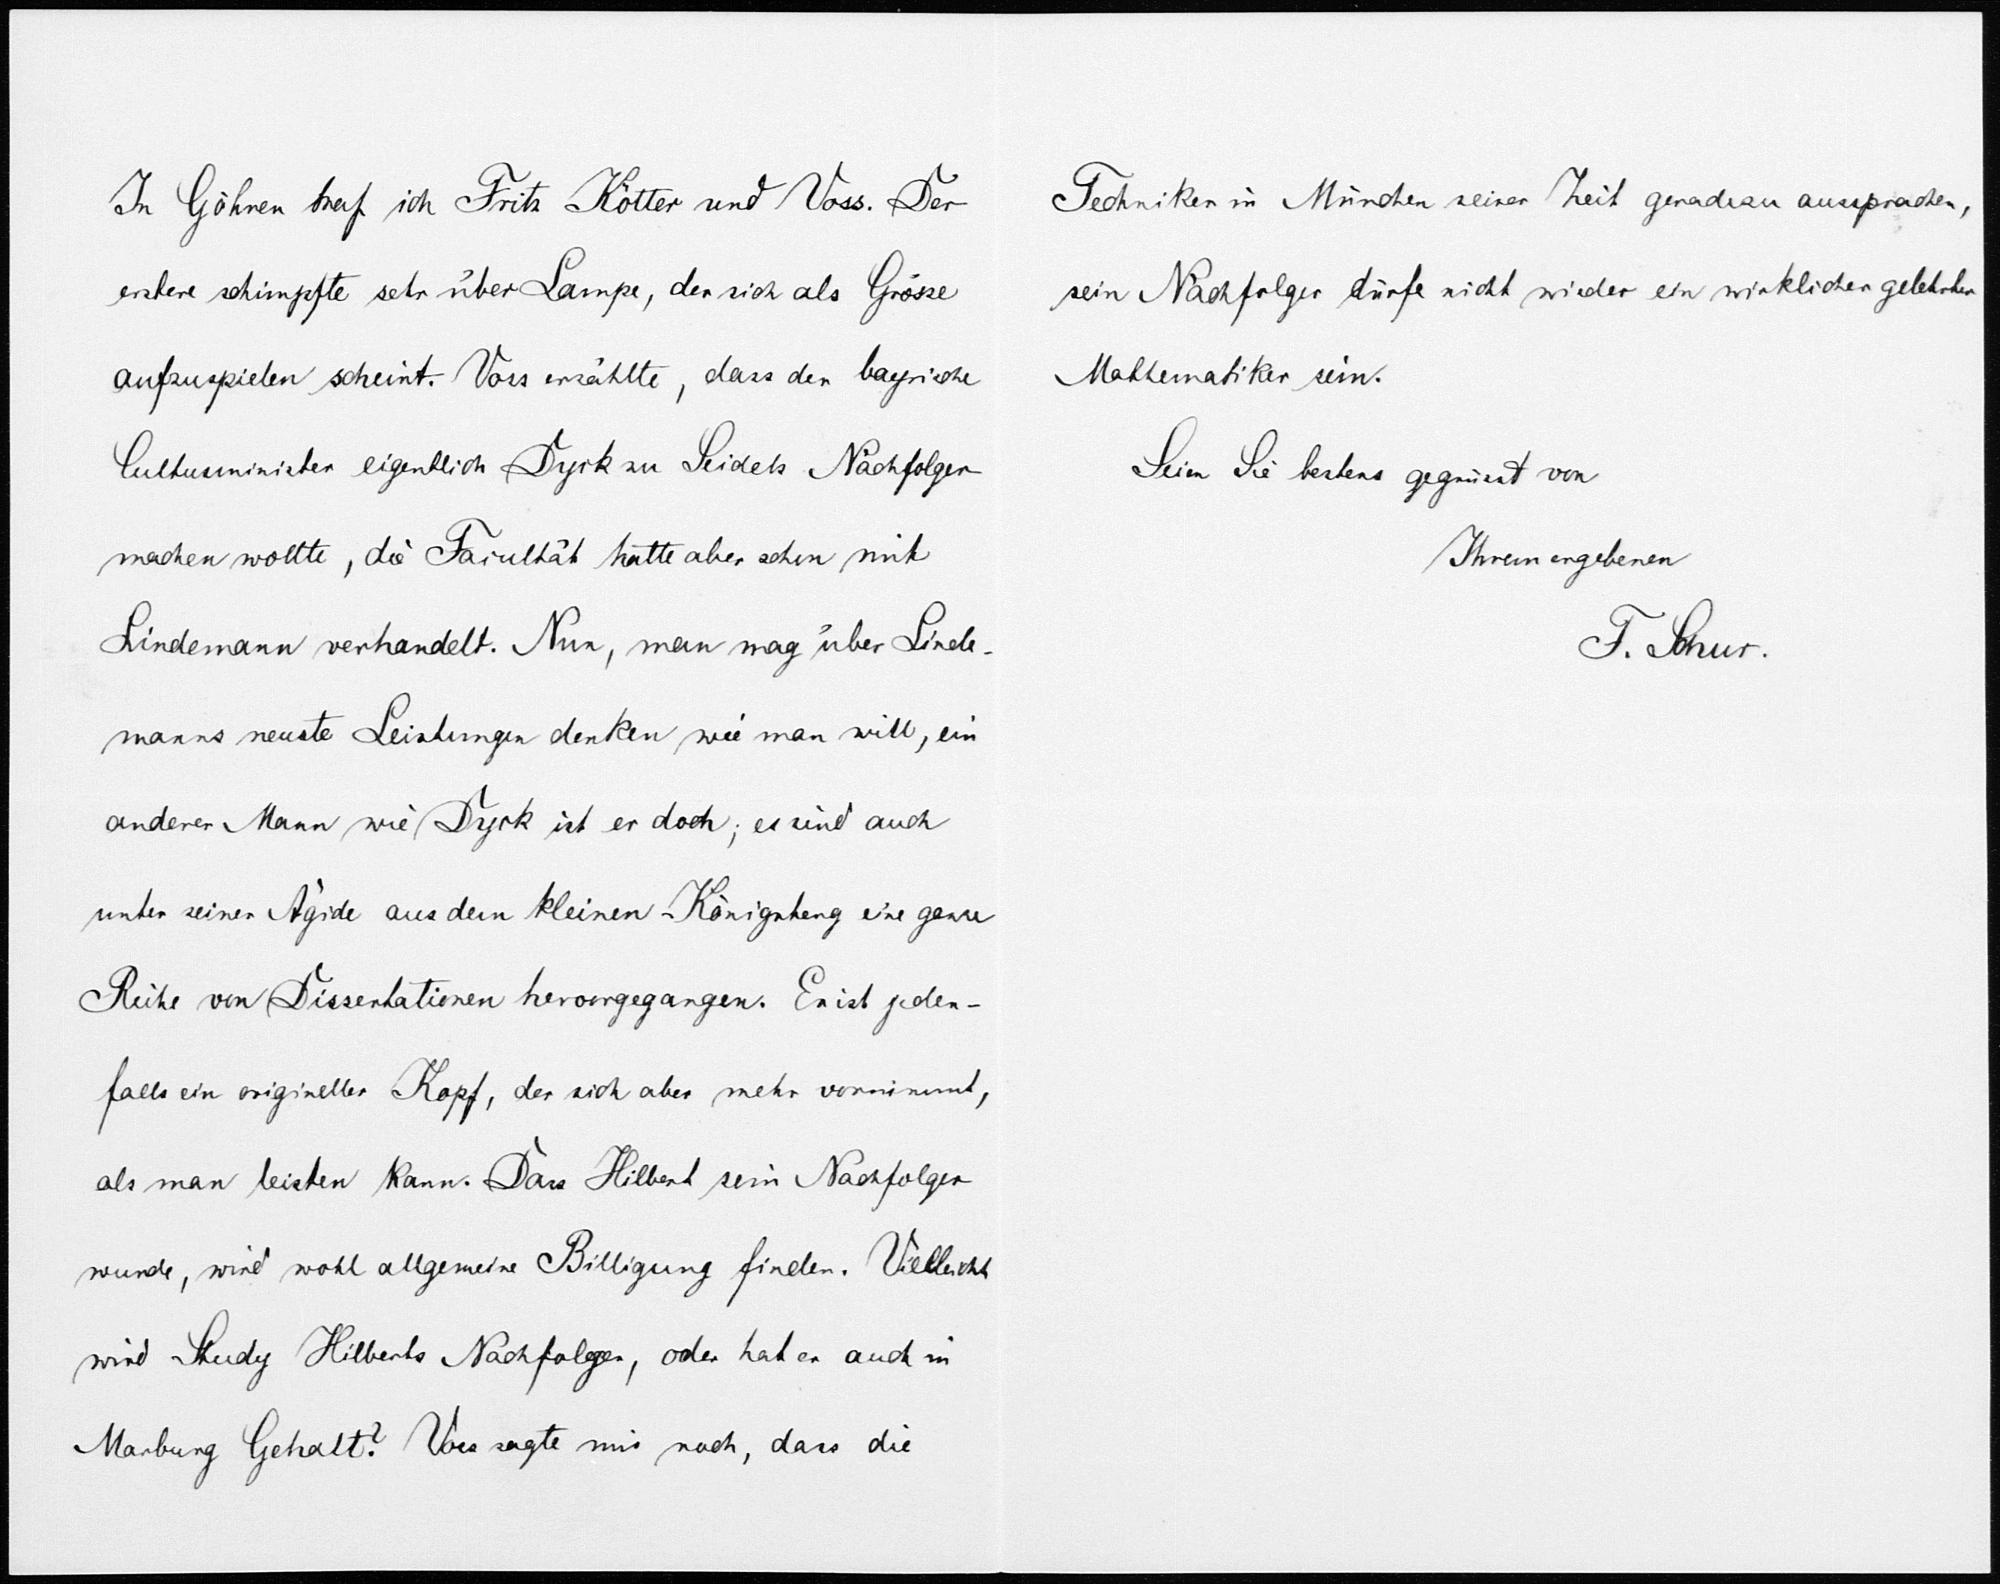 In Göhren traf ich Fritz Kötter und Voss. Der
erstere schimpfte sehr über Lampe, der sich als Grösse
aufzuspielen scheint. Voss erzählte, dass der bayrische
Cultusminister eigentlich Dyck zu Seidels Nachfolger
machen wollte, die Facultät hatte aber schon mit
Lindemann verhandelt. Nun, man mag über Linde-
manns neuste Leistungen denken wie man will, ein
anderer Mann wie Dyck ist er doch; es sind auch
unter seiner Ägide aus dem kleinen Königsberg eine ganze
Reihe von Dissertationen hervorgegangen. Er ist jeden-
falls ein origineller Kopf, der sich aber mehr vornimmt,
als man leisten kann. Dass Hilbert sein Nachfolger
wurde, wird wohl allgemeine Billigung finden. Vielleicht
wird Study Hilberts Nachfolger, oder hat er auch in
Marburg Gehalt? Voss sagte mir noch, dass die
Techniker in München seiner Zeit geradezu aussprachen,
sein Nachfolger dürfe nicht wieder ein wirklicher gelehrter
Mathematiker sein.
Seien Sie bestens gegrüsst von
Ihrem ergebenen
F. Schur.